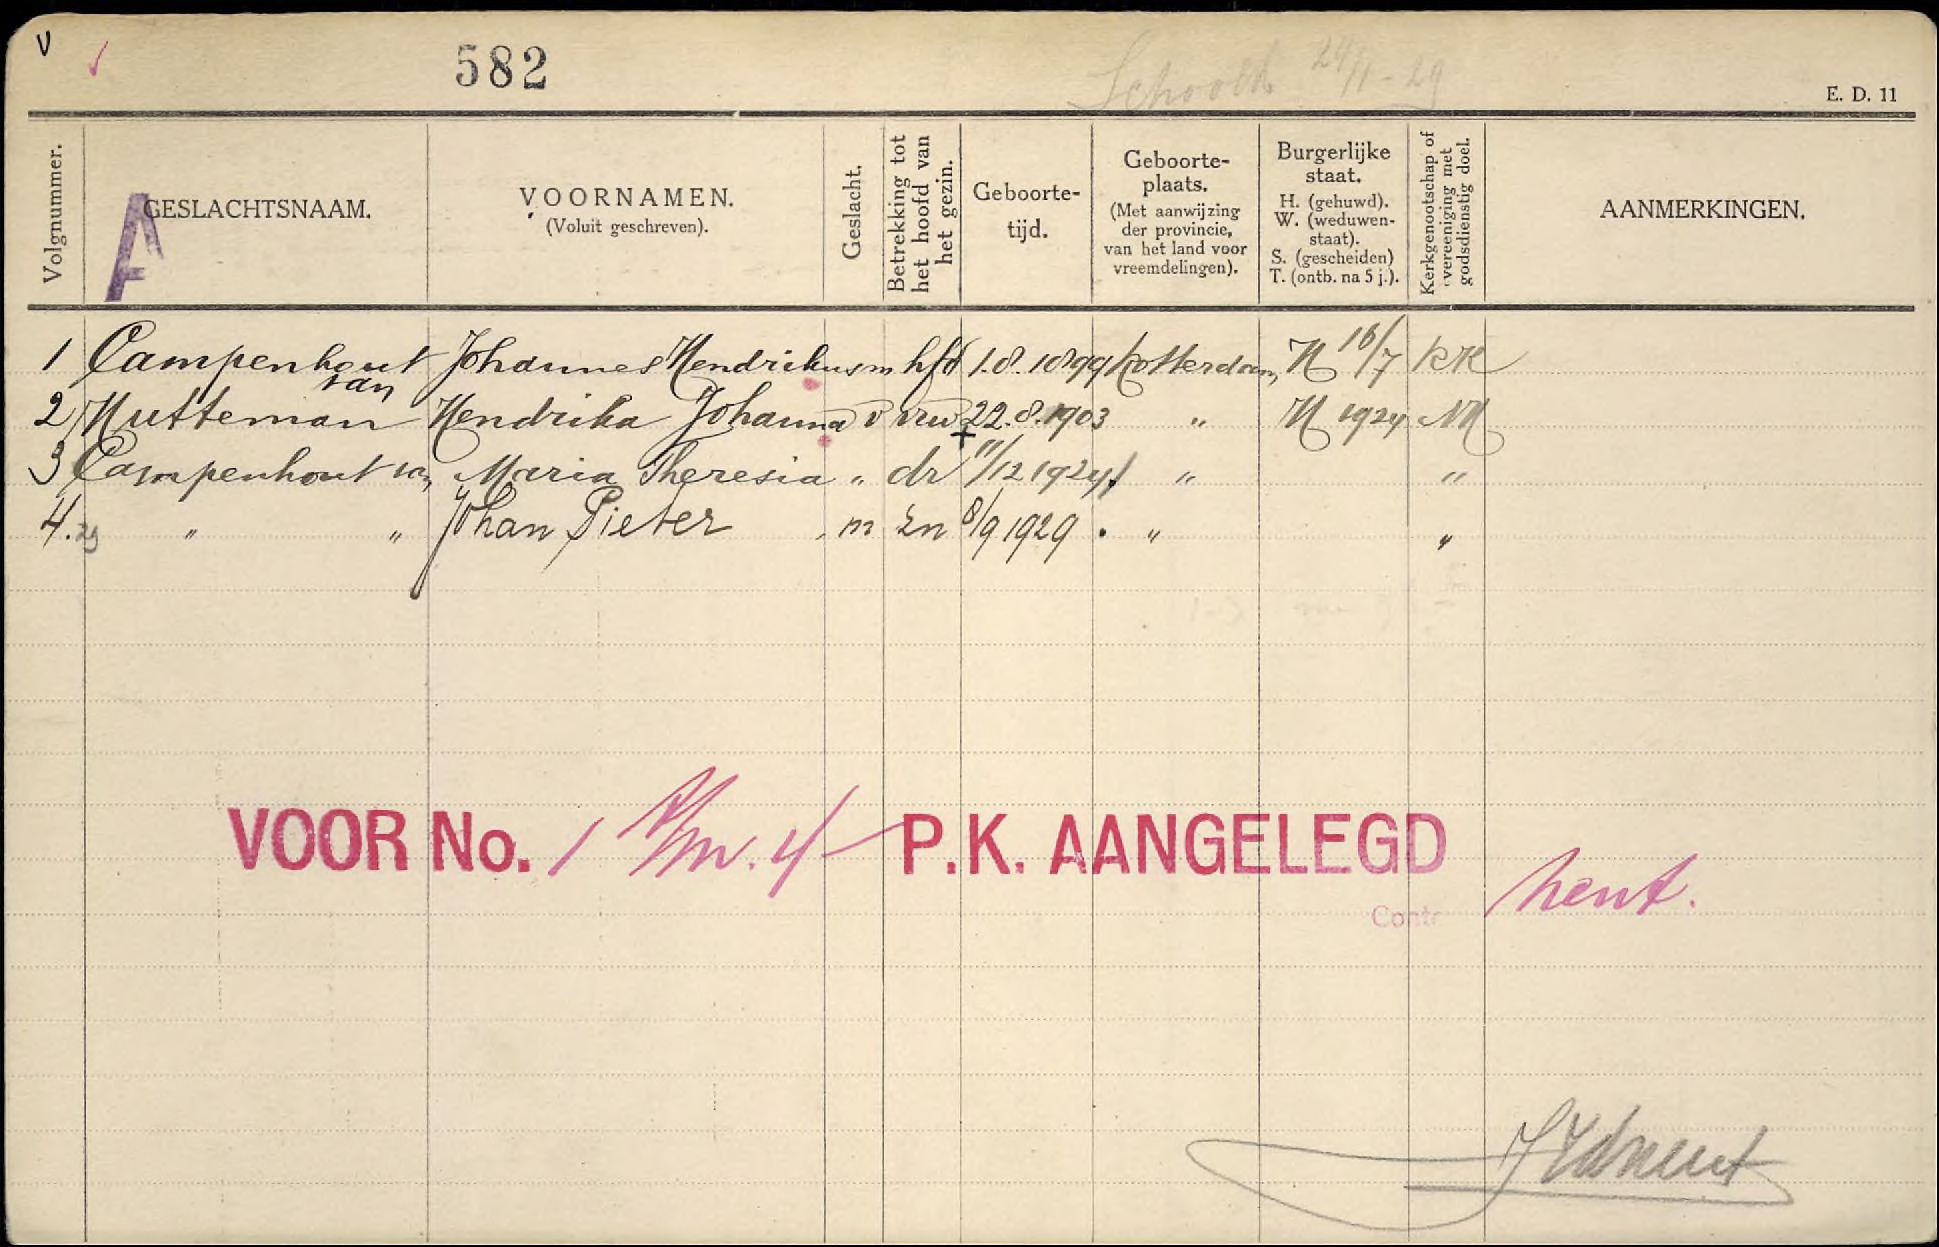 V
582
24/11-29
E. D. 11
Volgnummer.
A
GESLACHTSNAAM.
VOORNAMEN.
(Voluit geschreven).
Geslacht.
Betrekking tot
het hoofd van
het gezin.
Geboorte-
tijd.
Geboorte-
plaats.
(Met aanwijzing
der provincie,
van het land voor
vreemdelingen).
Burgerlijke
staat.
H. (gehuwd).
W. (weduwen-
staat).
S. (gescheiden)
T. (ontb. na 5 j.).
Kerkgenootschap of
vereeniging met
godsdienstig doel.
AANMERKINGEN.
1 Campenhout van Johannes Hendrikus m hfd 1.8.1899 Rotterdam H 16/7 RK
2 Hutteman Hendrika Johanna v vrw 22.8.1903 " H 1924 NH
3 Campenhout van Maria Theresia " dr 11/12 1924 " "
4. 29 " " Johan Pieter m Zn 8/9 1929 " "
VOOR No. 1 t/m. 4 P.K. AANGELEGD
Contr